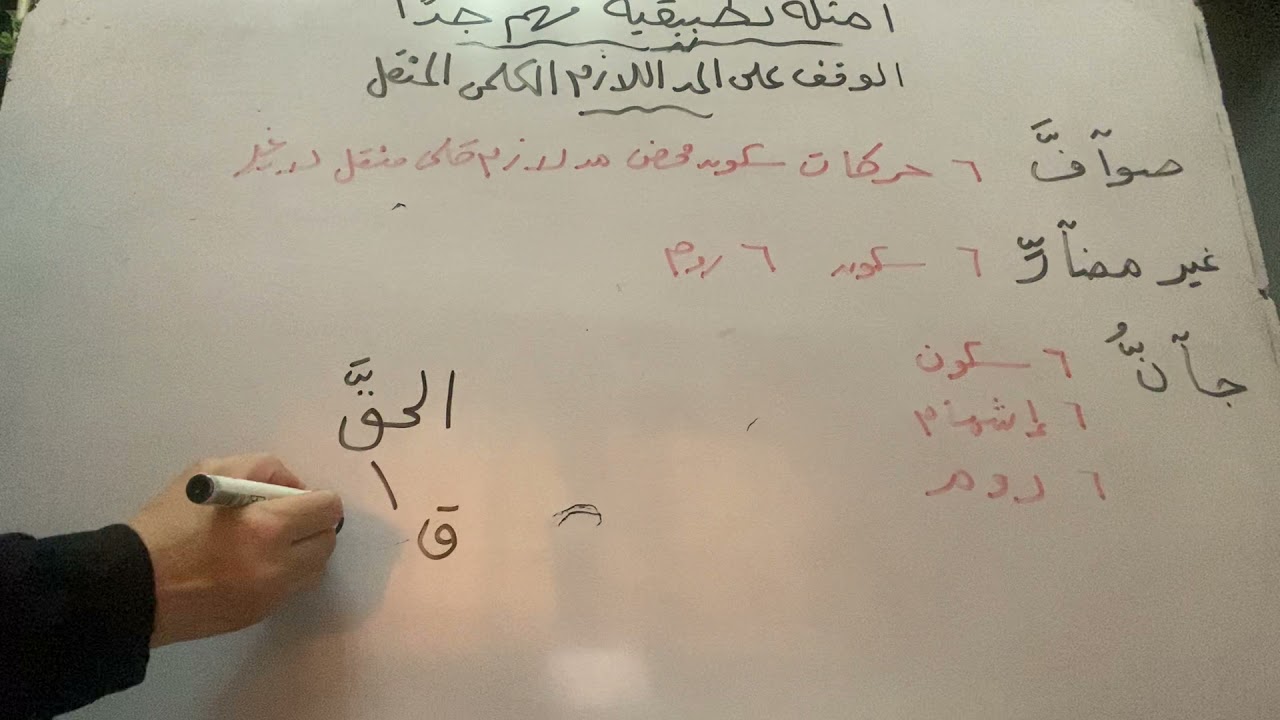 امثلة تطبيقية مهم جدًا
الوقف على المد اللازم الكلمي المثقل
صوآفَّ ٦ حركات سكون محض مد لازم كلمي مثقل لا غير
غير مضآرٍّ ٦ سكون ٦ روم
جآنٌّ ٦ سكون
٦ إشمام
٦ روم
الحقَّ
ق